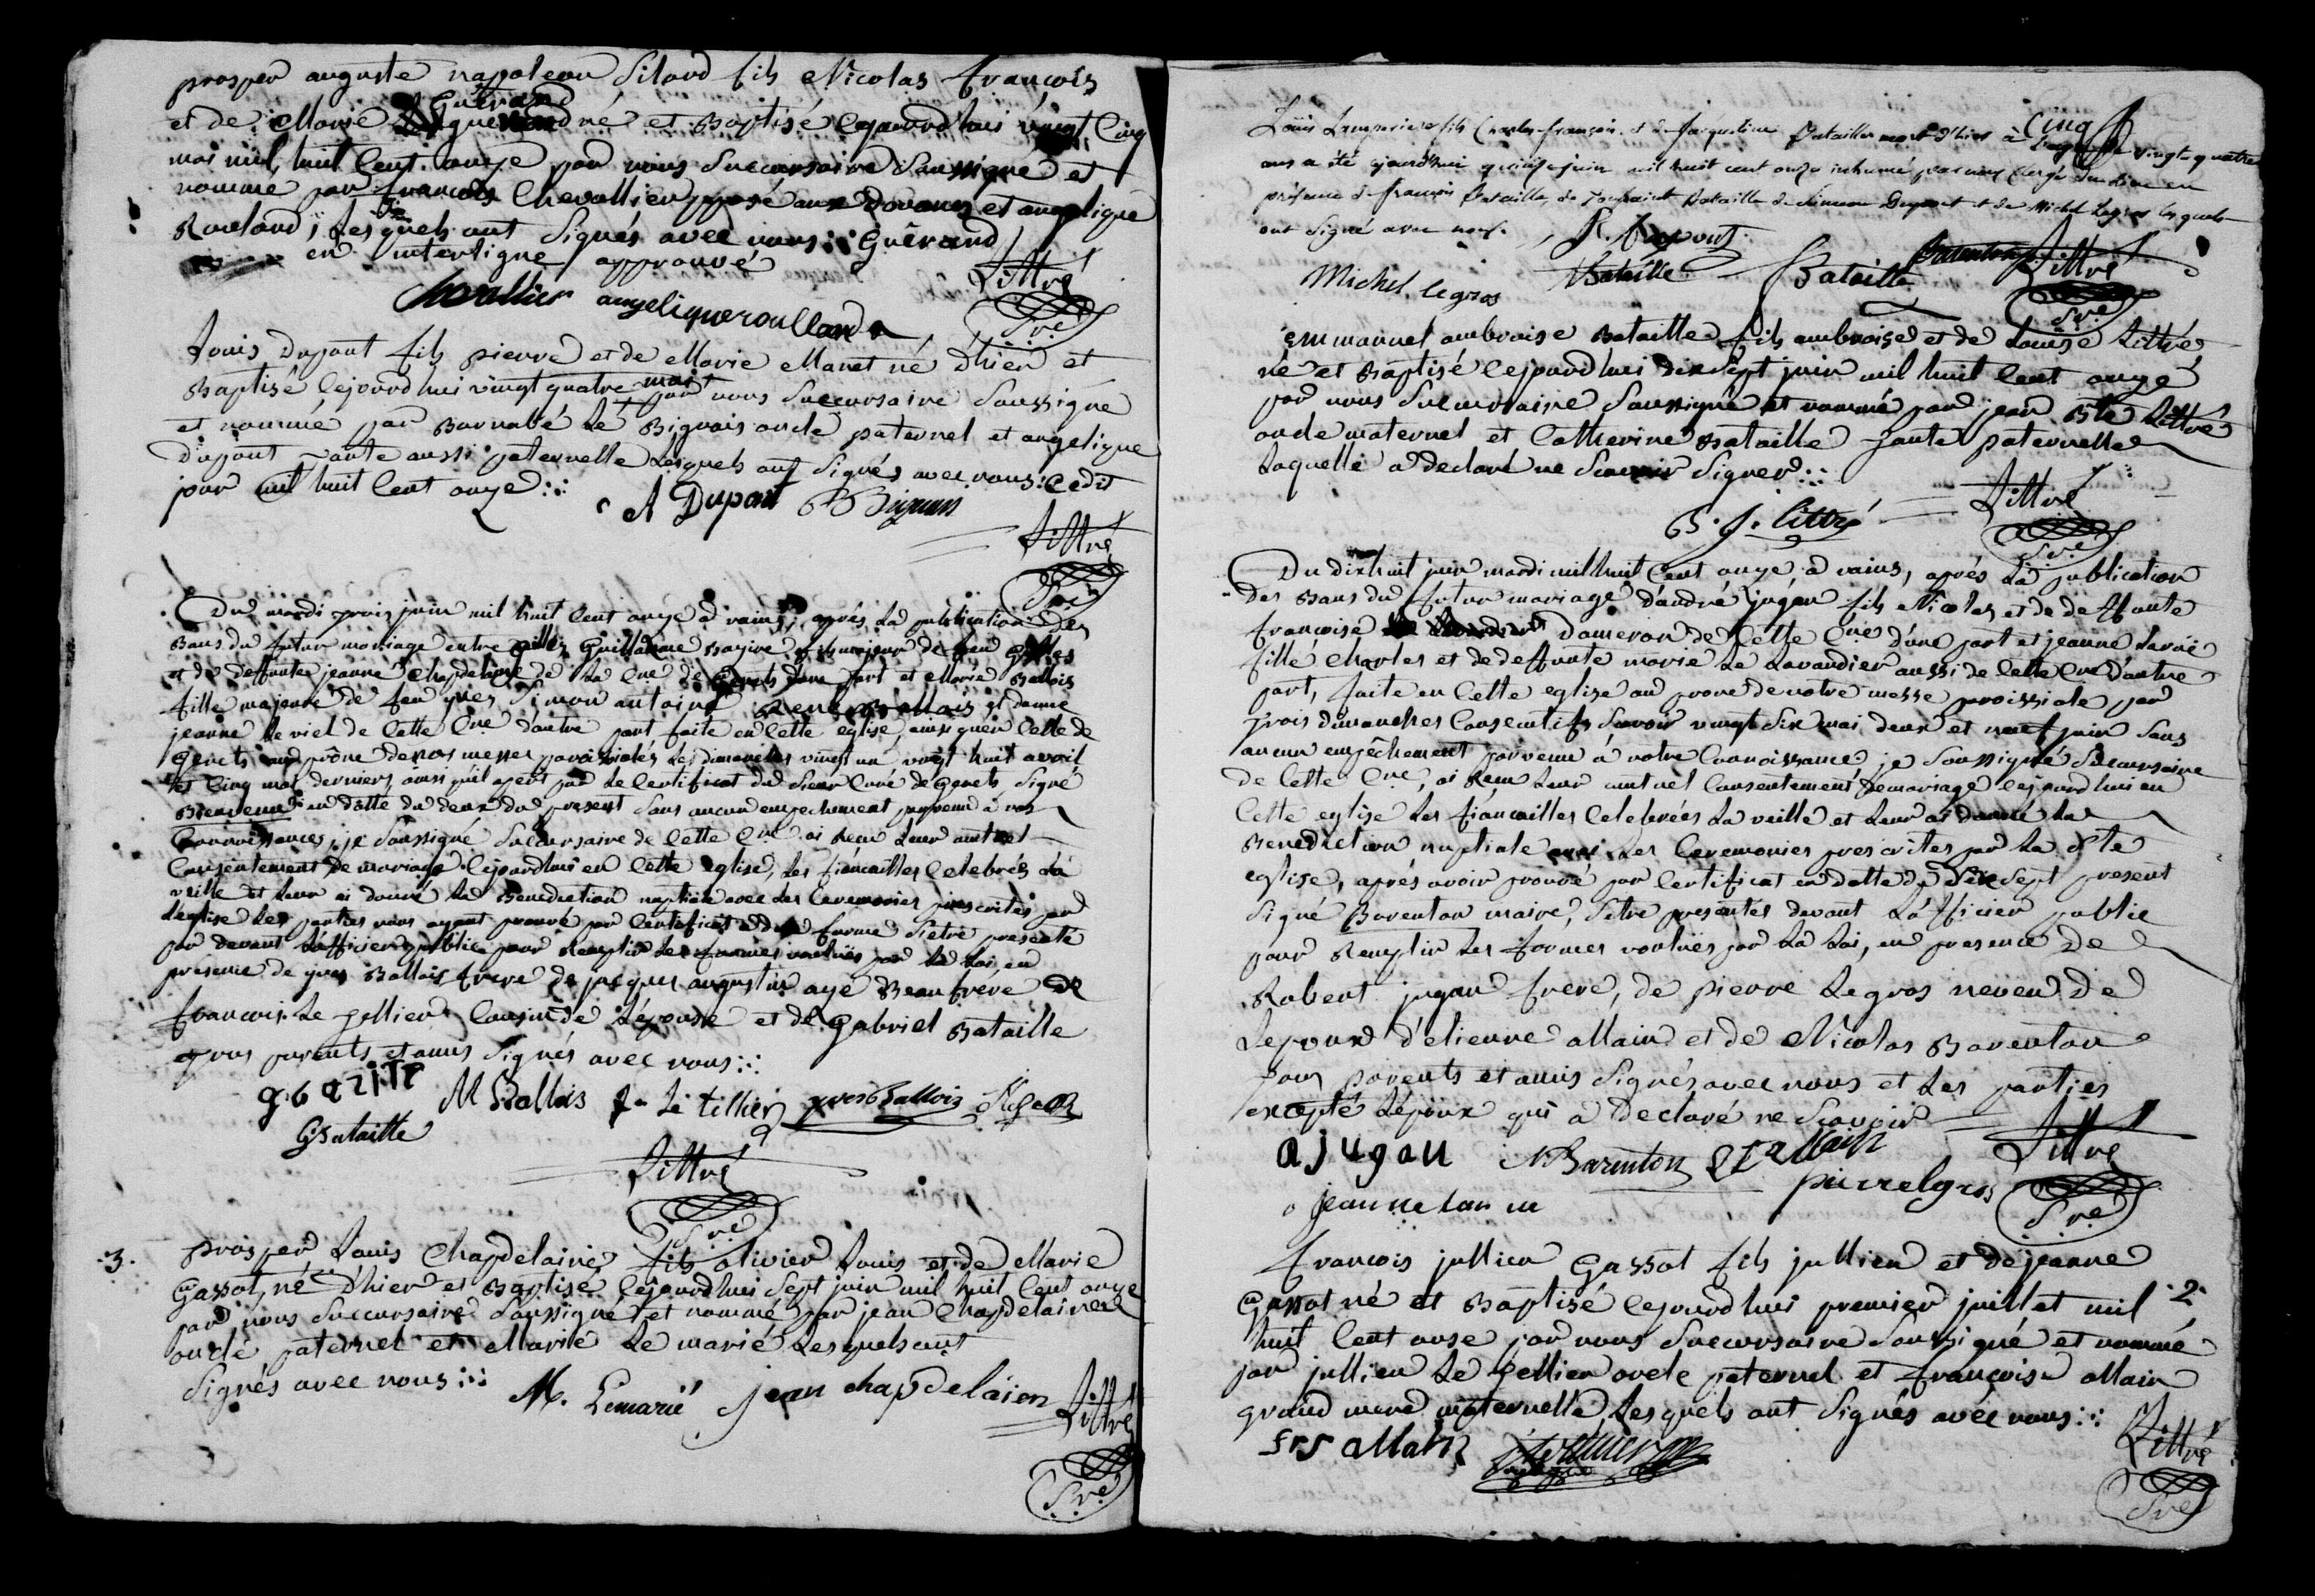 prosper auguste napoleon Silard fils Nicolas francois
Guérand
et de Marie né et Baptisé cejourdhui vingt Cinq
mai mil huit Cent onze par nous Succursaire Soussigné et
nommé par francois Chevallier pposé aux Douanes et angelique
Rouland, Lesquels ont Signés avec nous Guérand
en interligne approuvé
Littré
Chevallier angelique roulland
Sre
Louis Dupont fils pierre et de Marie Manet né D'hier et
Baptisé Cejourdhui vingt quatre mai par nous Succursaire Soussigné
et nommé par Barnabé Le Bignais oncle paternel et angelique
Dupont tante aussi paternelle Lesquels ont Signés avec nous Cedit
jour mil huit Cent onze
A Dupont B Bignais
Littré
Sre
Du mardi trois juin mil huit Cent onze a vains, après La publication Des
Bans du futur mariage entre Gilles Guillaume Bazire fils majeur de feu Gilles
et de deffunte jeanne Chapdelaine de La Cne de Genets d'une part et Marie Ballois
fille majeure de feu yves Simon antoine René Ballais et danne
jeanne Le viel de Cette Cne d'autre part faite en Cette eglise, ainsi qu'en Celle de
Genets au prône de nos messes paroissiales Les dimanches vingt un vingt huit avril
et Cinq mai derniers, ainsi qu'il apert par Le Certificat du Sieur Curé de Genets Signé
Bienvenu en datte du deux du present Sans aucun empechement parvenu à nos
Connoissances, je Soussigné Succursaire de Cette Cne ai Reçu Leur mutuel
Consentement De mariage Cejourdhui en Cette eglise, Les fiancailles Celebrés La
veille et Leur ai donné La Benediction nuptiale avec Les Ceremonies prescrites par
L'église Les parties nous ayant prouvé par Certificat forme S'etre presenté
par devant L'officier public pour Remplir Les formes voulües par La Loi, en
presence de yves Ballois frere De jacques augustin azé Beau frere De
francois Le pellier Cousin de L'épouse et de Gabriel Bataille
tous parents et amis Signés avec nous
g b azire M Ballois f. Le tellier yves Ballois
G Bataille
Littré
Sre
3. prosper Louis Chapdelaine fils olivier Louis et de Marie
Gassot, né D'hier et Baptisé Cejourdhui Sept juin mil huit Cent onze
par nous Succursaire Soussigné et nommé par jean Chapdelaine
oncle paternel et Marie Le marié Lesquels ont
Signés avec nous
M. Lemarié jean chapdelaien Littré
Sre
Cinq
Louis Lemperiere fils Charles francois et de Jacqueline Bataille mort d'hier à vingt quatre
ans a été cejourd'hui quinze juin mil huit cent onze inhumé par nous en
présence de francois Bataille de Toussaint Bataille de Simeon Dupont et de Michel Legros lesquels
ont Signé avec nous.
S. Dupont
Michel legros Bataille Bataille Barenton Littré
Sre
emmanuel ambroise Bataille fils ambroise et de Louise Littré
né et Baptisé Cejourdhui dix Sept juin mil huit Cent onze
par nous Succursaire Soussigné et nommé par jean Bte Littré
oncle maternel et Catherine Bataille tante paternelle
Laquelle a declaré ne Scavoir Signer
B. J. littré Littré
Sre
Du dixhuit juin mardi mil huit Cent onze a vains, après La publication
Des Bans du futur mariage d'andré jugan fils Nicolas et de deffunte
francoise Dameron De Cette Cne d'une part et jeanne Larüe
fille Charles et de deffunte marie Le Lavandier aussi de Cette Cne d'autre
part, faite en Cette eglise au prone de notre messe paroissiale par
trois dimanches Consecutifs Savoir vingt Six mai deux et neuf juin Sans
aucun empêchement parvenu à notre Connoissance je Soussigné Succursaire
De Cette Cne, ai Reçu Leur mutuel Consentement De mariage Cejourd'hui en
Cette eglise Les fiancailles Celebrées La veille et Leur ai donné La
Benediction nuptiale avec Les Ceremonies prescrites par La Ste
eglise, après avoir prouvé par Certificat en datte du dix Sept present
Signé Barenton maire, S'etre presentés devant L'officier public
pour Remplir Les formes voulües par La Loi, en presence De
Robert jugan frere, de pierre Legros neveu De
L'epoux d'etienne allain et de Nicolas Barenton
tous parents et amis Signés avec nous et Les parties
excepté L'époux qui a Declaré ne Scavoir
a jugan N Barenton allain Littré
jeanne pierrelgros
Sre
francois jullien Gassot fils jullien et de jeanne
Gassot né et Baptisé Cejourdhui premier juillet mil 2.
huit Cent onse par nous Succursaire Soussigné et nommé
par jullien Le Tellier oncle paternel et francoise allain
grand mere maternelle, Lesquels ont Signés avec nous
frs allain Littré
Sre